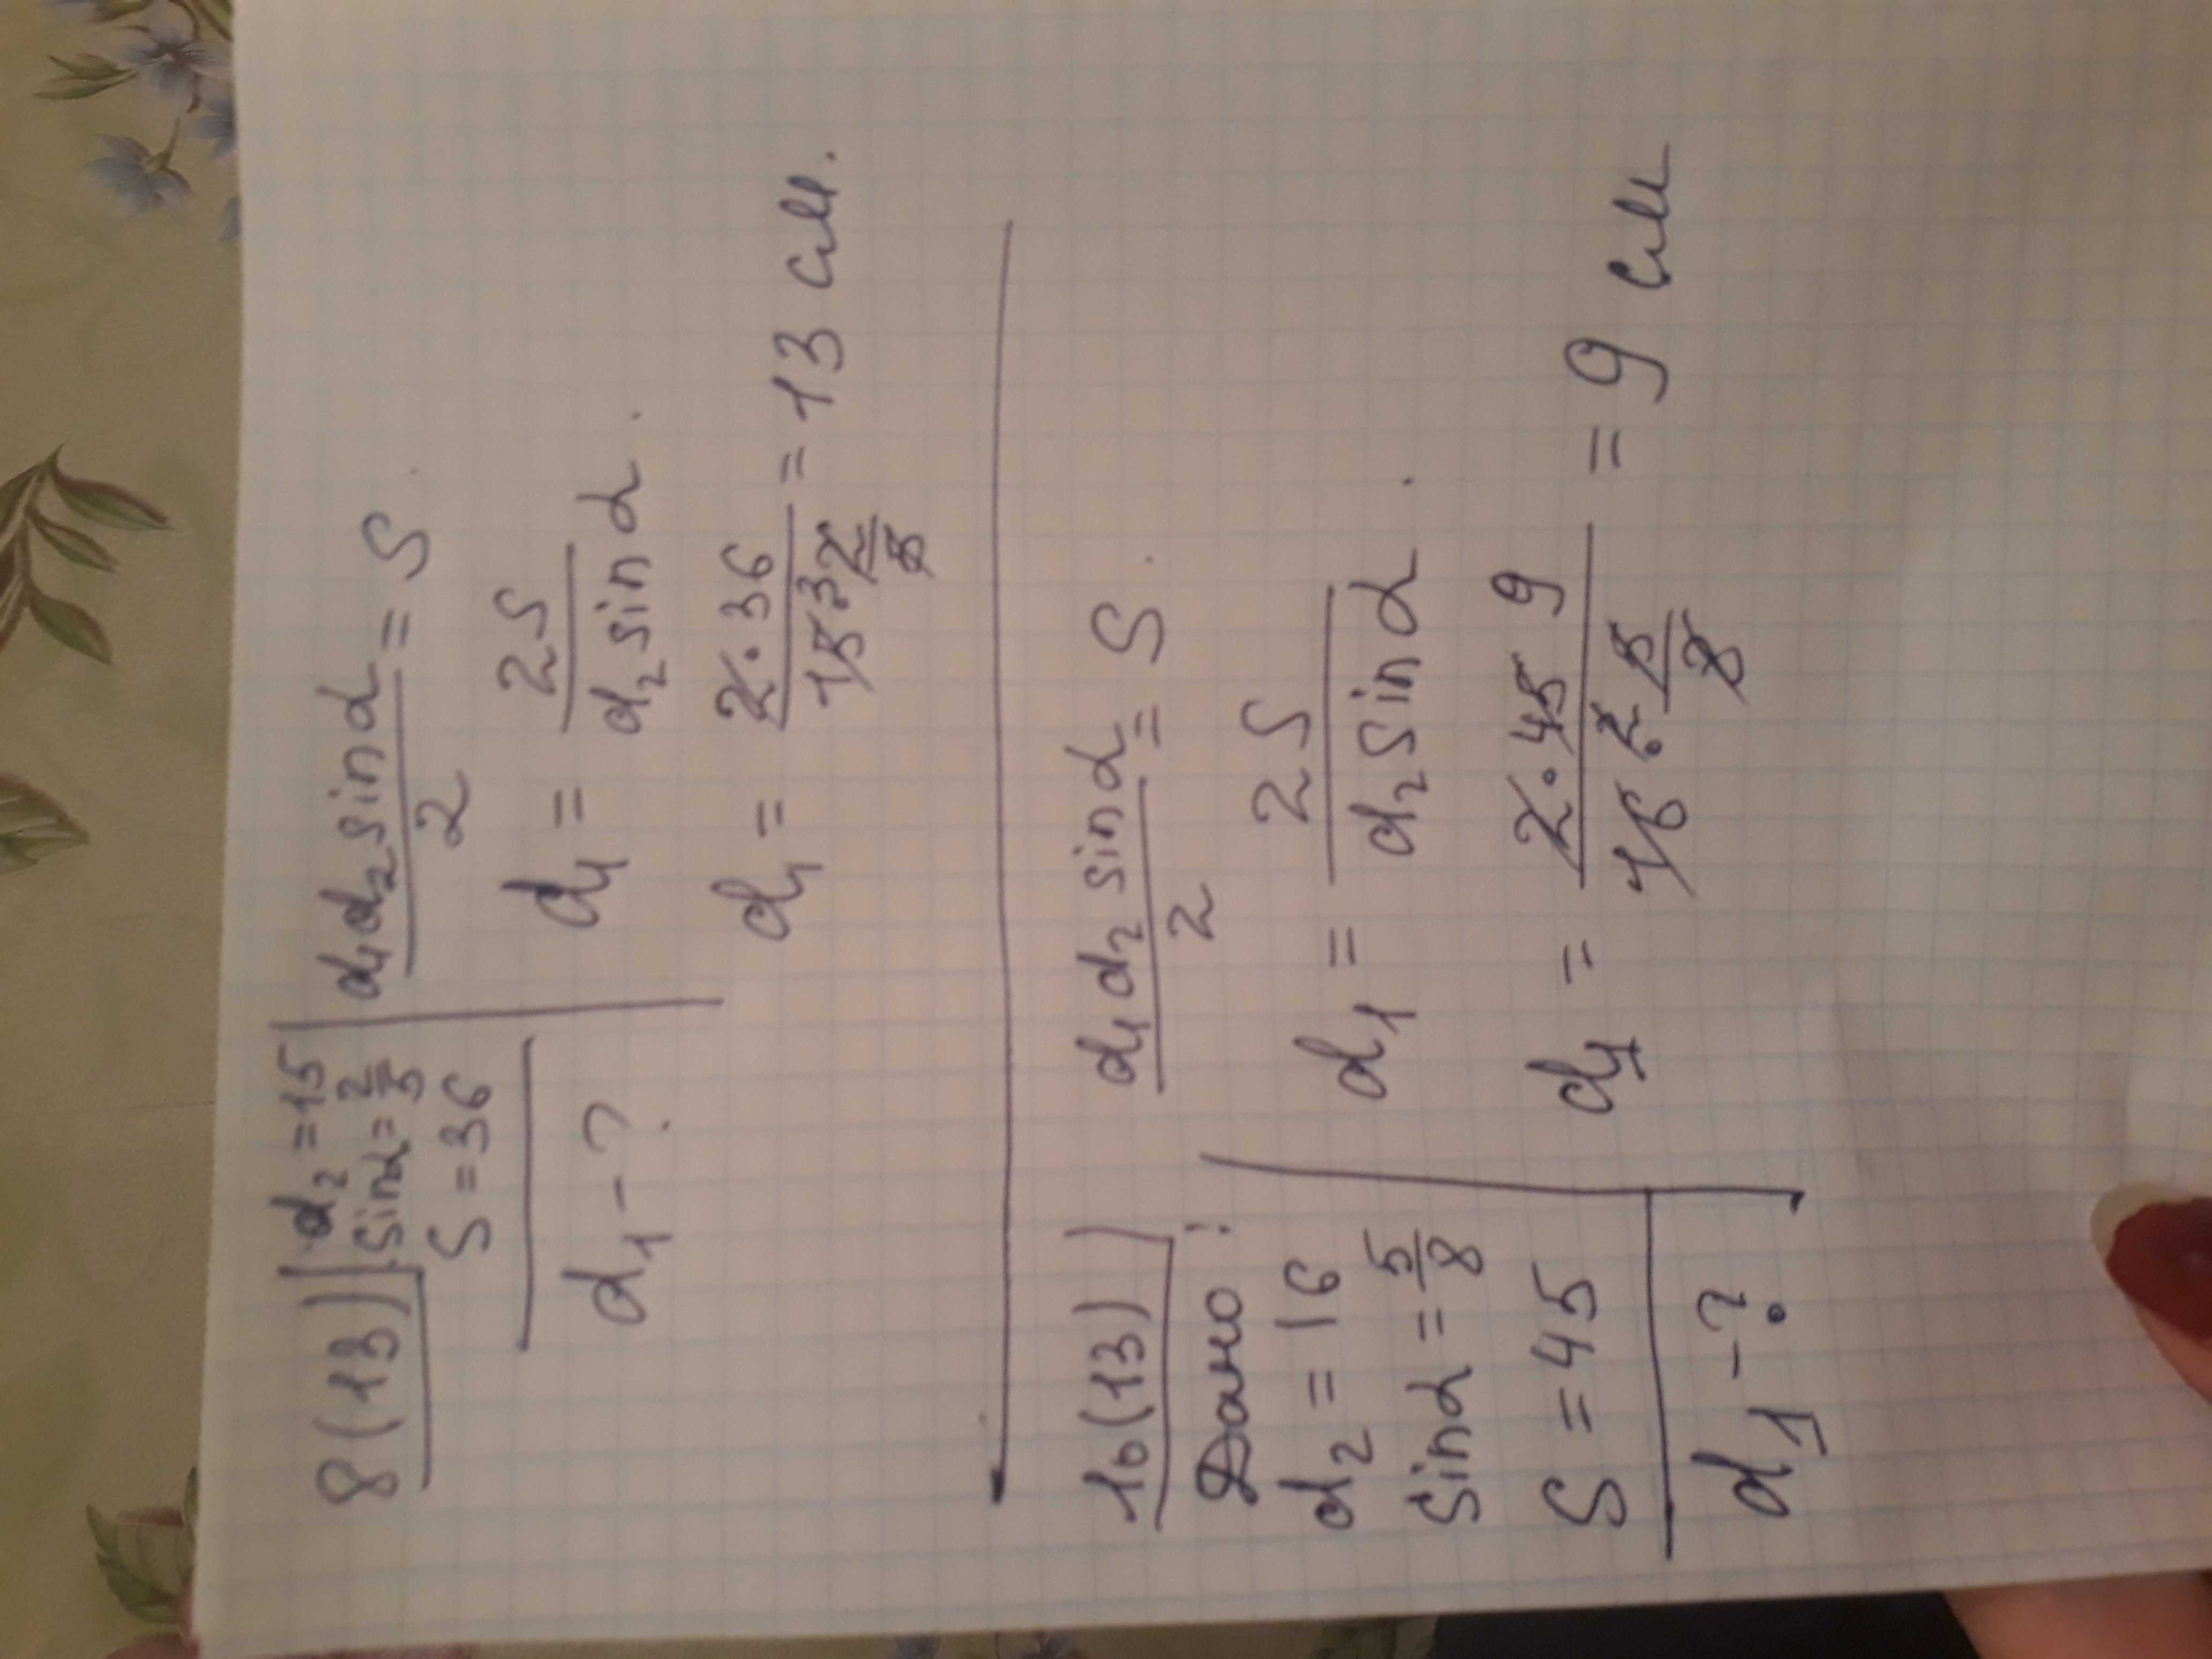 8(13)
d₂ = 15
sinα = 2/5
S = 36
d₁ - ?
d₁d₂sinα/2 = S
d₁ = 2S/d₂sinα.
d₁ = 2·36/15³·2/5 = 13 см.
10(13)
Дано:
d₂ = 16
sinα = 5/8
S = 45
d₁ - ?
d₁d₂sinα/2 = S.
d₁ = 2S/d₂sinα.
d₁ = 2·45 9/16·2·5/8 = 9 см